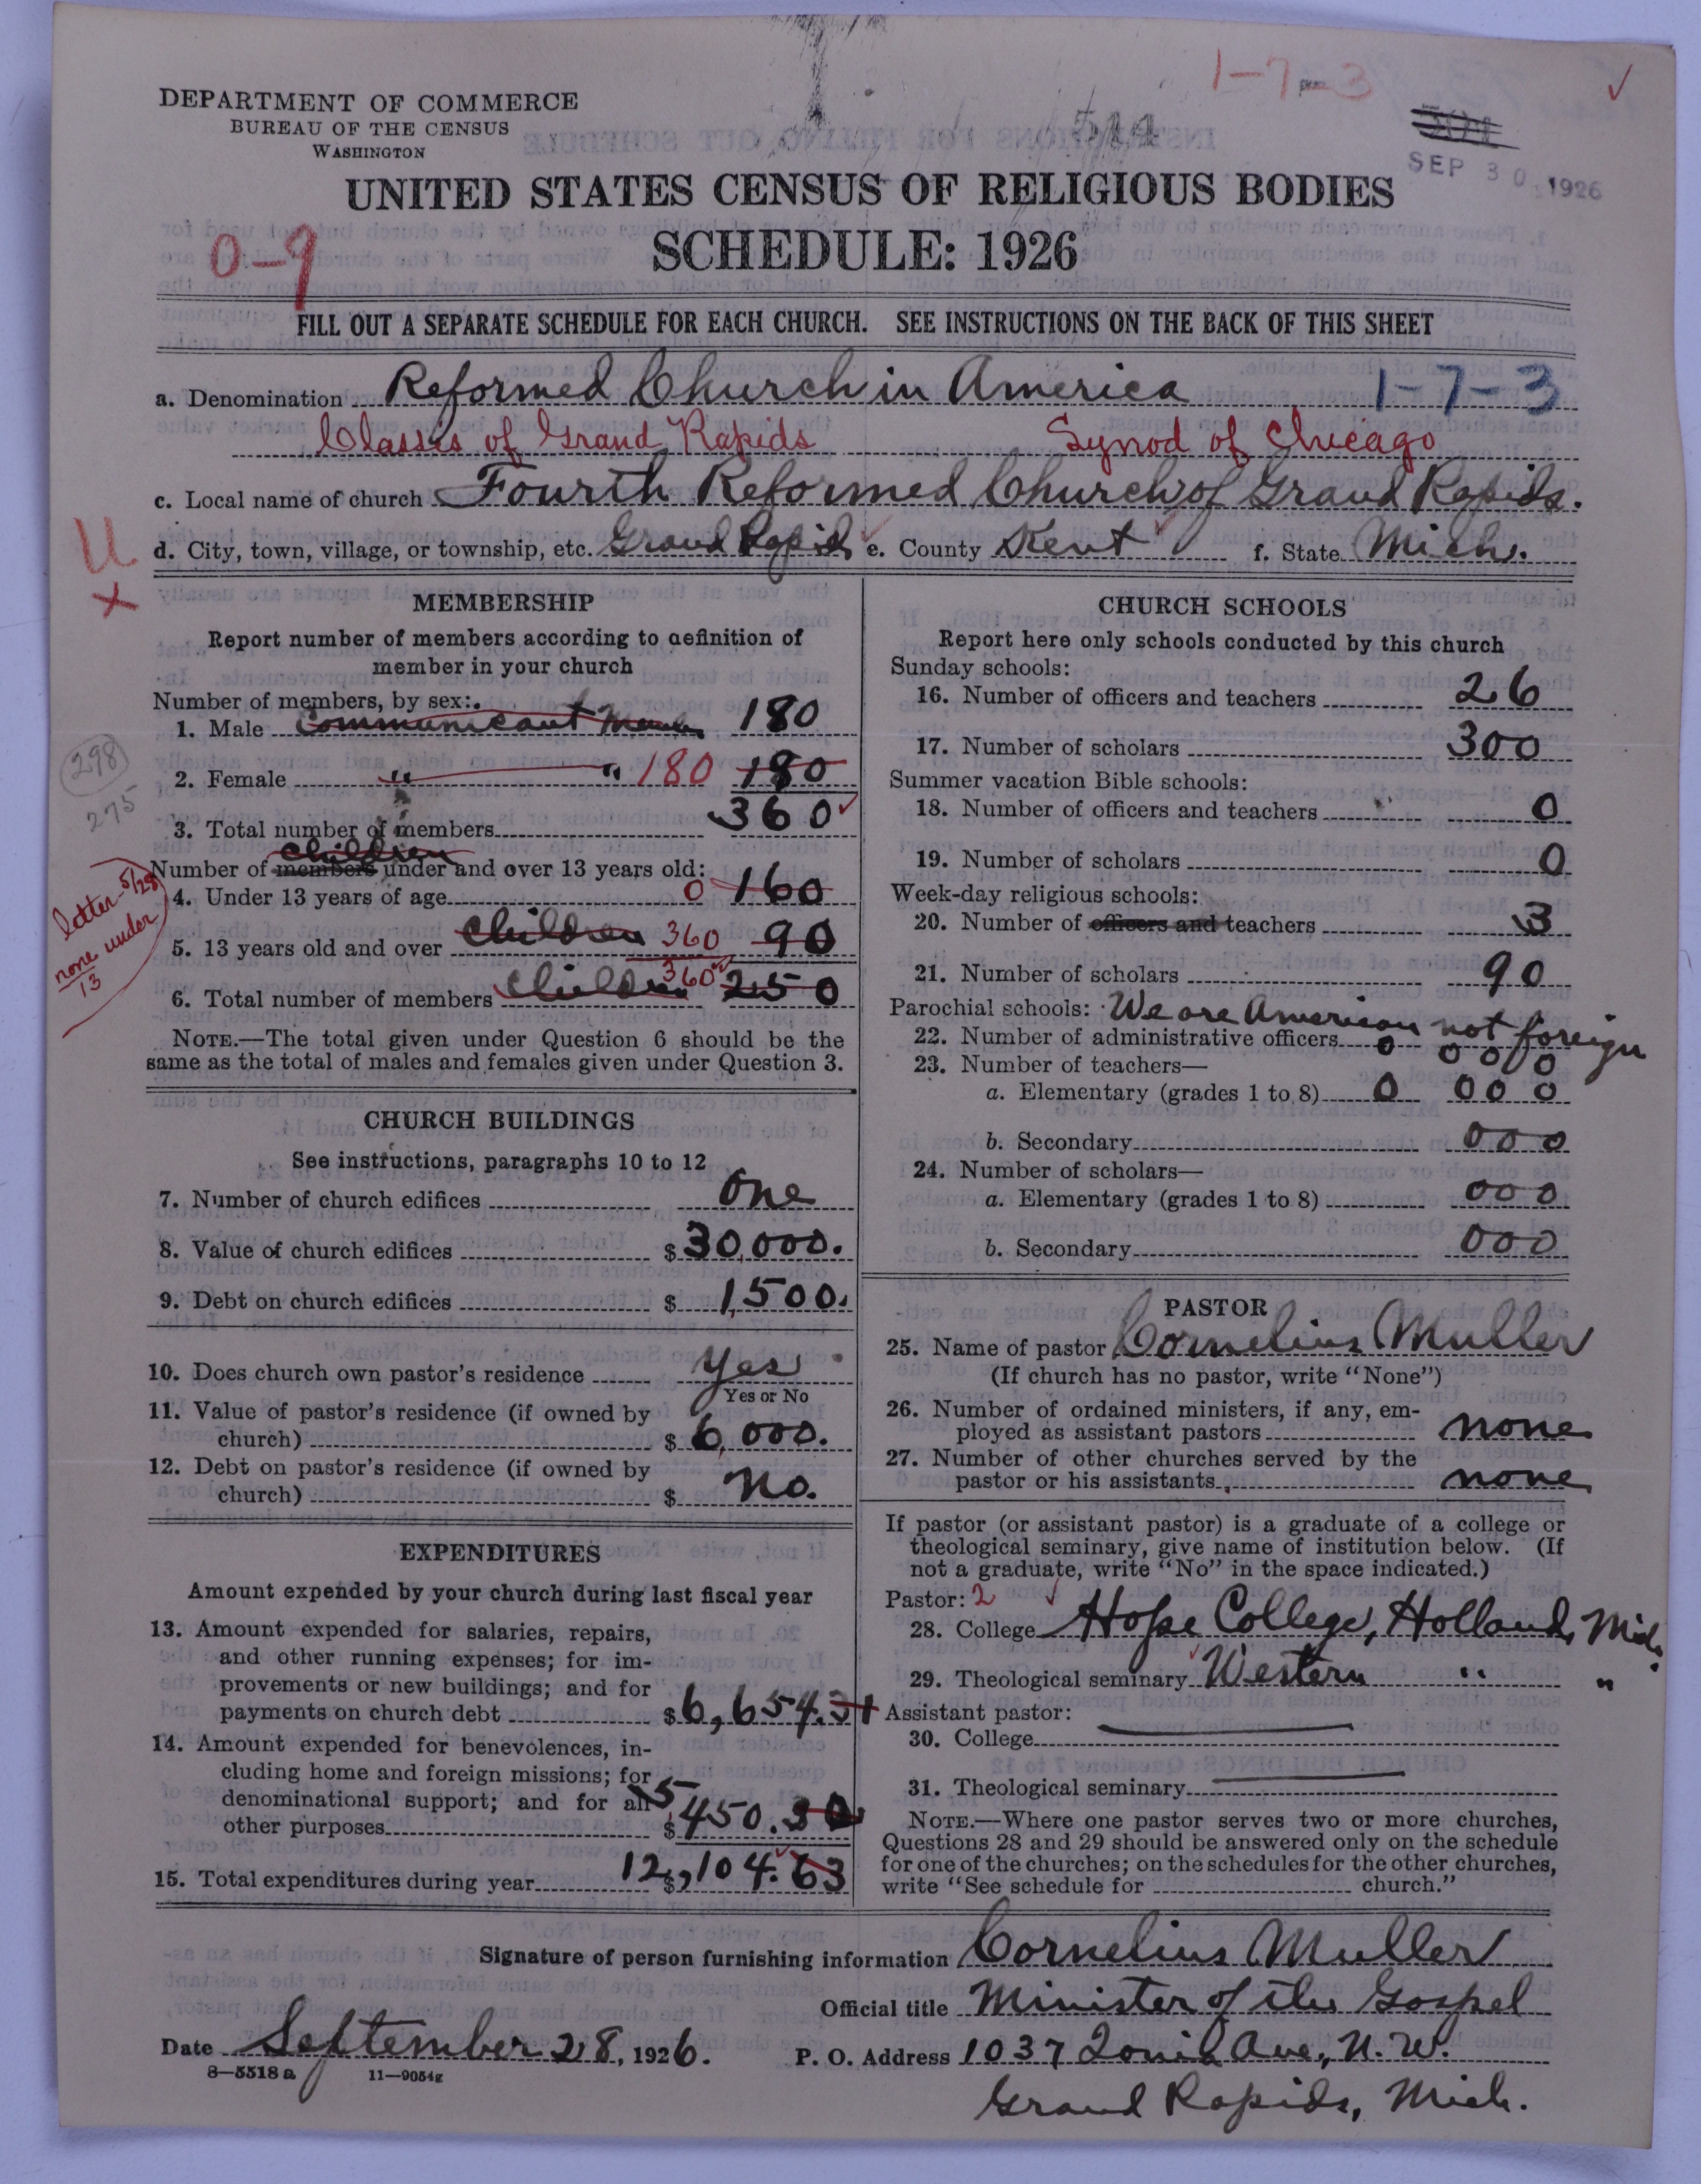 1-7-3 ✓
DEPARTMENT OF COMMERCE
BUREAU OF THE CENSUS
WASHINGTON
544
SEP 30 1926
UNITED STATES CENSUS OF RELIGIOUS BODIES
SCHEDULE: 1926
0-9
FILL OUT A SEPARATE SCHEDULE FOR EACH CHURCH. SEE INSTRUCTIONS ON THE BACK OF THIS SHEET
a. Denomination Reformed Church in America 1-7-3
Classis of Grand Rapids Synod of Chicago
c. Local name of church Fourth Reformed Church of Grand Rapids.
U
x
d. City, town, village, or township, etc. Grand Rapids e. County Kent f. State Mich.
MEMBERSHIP
Report number of members according to definition of
member in your church
Number of members, by sex:
1. Male Communicant Mem 180
298
275
2. Female " " 180 180
3. Total number of members 360
children
Number of members under and over 13 years old:
4. Under 13 years of age 0 160
letter 5/28
none under
13
5. 13 years old and over children 360 90
6. Total number of members children 360 250
NOTE.—The total given under Question 6 should be the
same as the total of males and females given under Question 3.
CHURCH BUILDINGS
See instructions, paragraphs 10 to 12
7. Number of church edifices One
8. Value of church edifices $ 30,000.
9. Debt on church edifices $ 1,500.
10. Does church own pastor's residence Yes
Yes or No
11. Value of pastor's residence (if owned by
church) $ 6,000.
12. Debt on pastor's residence (if owned by
church) $ No.
EXPENDITURES
Amount expended by your church during last fiscal year
13. Amount expended for salaries, repairs,
and other running expenses; for im-
provements or new buildings; and for
payments on church debt $ 6,654.31
14. Amount expended for benevolences, in-
cluding home and foreign missions; for
denominational support; and for all
other purposes $ 5,450.
15. Total expenditures during year $ 12,104.63
CHURCH SCHOOLS
Report here only schools conducted by this church
Sunday schools:
16. Number of officers and teachers 26
17. Number of scholars 300
Summer vacation Bible schools:
18. Number of officers and teachers 0
19. Number of scholars 0
Week-day religious schools:
20. Number of officers and teachers 3
21. Number of scholars 90
Parochial schools: We are American not foreign
22. Number of administrative officers 0 0 0 0
23. Number of teachers—
a. Elementary (grades 1 to 8) 0 0 0 0
b. Secondary 000
24. Number of scholars—
a. Elementary (grades 1 to 8) 000
b. Secondary 000
PASTOR
25. Name of pastor Cornelius Muller
(If church has no pastor, write "None")
26. Number of ordained ministers, if any, em-
ployed as assistant pastors none
27. Number of other churches served by the
pastor or his assistants none
If pastor (or assistant pastor) is a graduate of a college or
theological seminary, give name of institution below. (If
not a graduate, write "No" in the space indicated.)
Pastor: 2 ✓
28. College Hope College, Holland, Mich.
29. Theological seminary Western " "
Assistant pastor:
30. College
31. Theological seminary
NOTE.—Where one pastor serves two or more churches,
Questions 28 and 29 should be answered only on the schedule
for one of the churches; on the schedules for the other churches,
write "See schedule for church."
Signature of person furnishing information Cornelius Muller
Official title Minister of the Gospel
Date September 28, 1926. P. O. Address 1037 Ionia Ave., N. W.
8—5518 a 11—9054g
Grand Rapids, Mich.